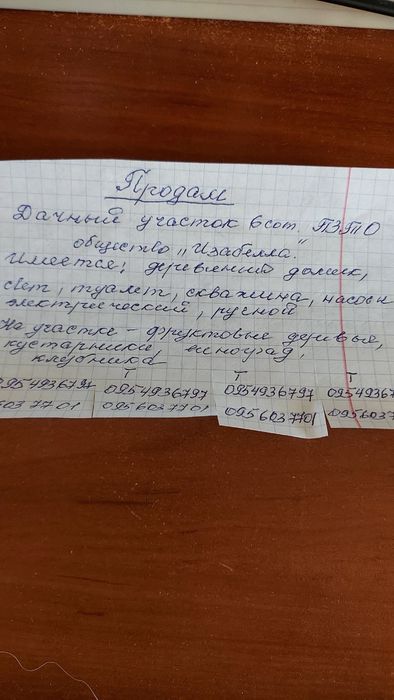 Продам
Дачный участок 6 сот, ПЗТО
общество "Изабелла".
Имеется: деревянный домик,
свет, туалет, скважина, насосы
электрический, ручной
На участке - фруктовые деревья,
кустарники виноград,
клубника
Т Т Т
0954936797 0954936797 0954936797 09549367
6037701 0956037701 0956037701 0956037